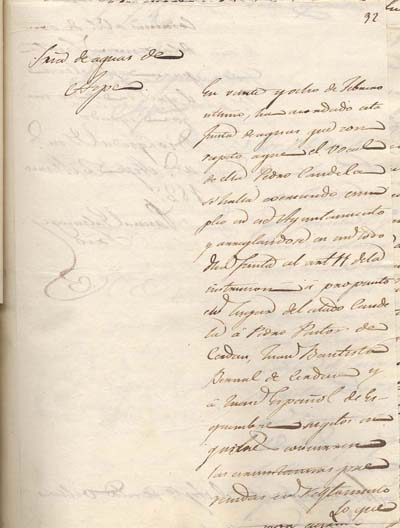 92
Junta de aguas de
Aspe
En veinte y ocho de Febrero
ultimo, ha acordado esta
Junta de aguas que con
respeto a que el vocal
de ella Pedro Candela
se halla comisionado
en su Ayuntamiento
y arreglandose en un todo
Junta al art 11 de la
instruccion a propuesto
en lugar del citado Cande
la á Pedro Pastor de
Cerdan, Juan Bautista
Bernal de Cerdan y
á Juan Español de Es
quembre sujetos en
quienes concurren
las circunstancias pre
venidas en Reglamento
Lo que